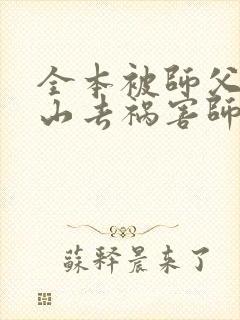 全本被師父
山去禍害師
蘇釋晨來了